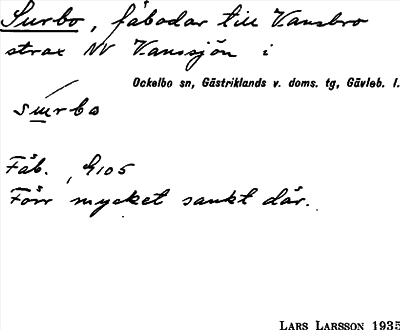 Surbo, fäbodar till Vansbro
strax NV Vanssjön i
Ockelbo sn, Gästriklands v. doms. tg, Gävleb. l.
surbo
Fäb. , G105
Förr mycket sankt där.
LARS LARSSON 1935